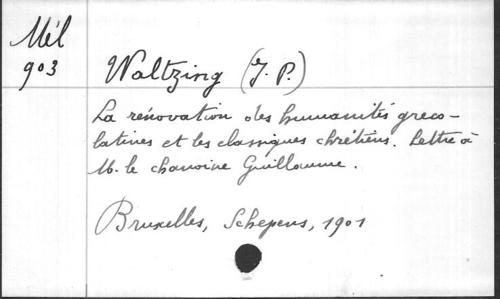 Mél
903
Waltzing (J. P.)
La rénovation des humanités greco-
latines et les classiques chrétiens. Lettre à
M. le chanoine Guillaume.
Bruxelles, Schepens, 1901